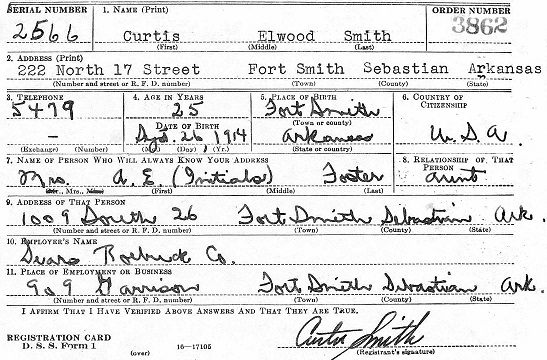 SERIAL NUMBER 1. NAME (Print) ORDER NUMBER
2566 Curtis Elwood Smith 3862
(First) (Middle) (Last)
2. ADDRESS (Print)
222 North 17 Street Fort Smith Sebastian Arkansas
(Number and street or R. F. D. number) (Town) (County) (State)
3. TELEPHONE 4. AGE IN YEARS 5. PLACE OF BIRTH 6. COUNTRY OF CITIZENSHIP
5479 25 Fort Smith
(Town or county)
DATE OF BIRTH
— 26 1914 Arkansas U.S.A.
(Exchange) (Number) (Mo.) (Day) (Yr.) (State or country)
7. NAME OF PERSON WHO WILL ALWAYS KNOW YOUR ADDRESS 8. RELATIONSHIP OF THAT PERSON
Mrs. A. E. (Initials) Foster Aunt
Mr., Mrs., Miss (First) (Middle) (Last)
9. ADDRESS OF THAT PERSON
1009 South 26 Fort Smith Sebastian Ark.
(Number and street or R. F. D. number) (Town) (County) (State)
10. EMPLOYER'S NAME
Sears Roebuck Co.
11. PLACE OF EMPLOYMENT OR BUSINESS
909 Garrison Fort Smith Sebastian Ark.
(Number and street or R. F. D. number) (Town) (County) (State)
I AFFIRM THAT I HAVE VERIFIED ABOVE ANSWERS AND THAT THEY ARE TRUE.
REGISTRATION CARD
D. S. S. Form 1 (over) 16—17105 Curtis Smith
(Registrant's signature)